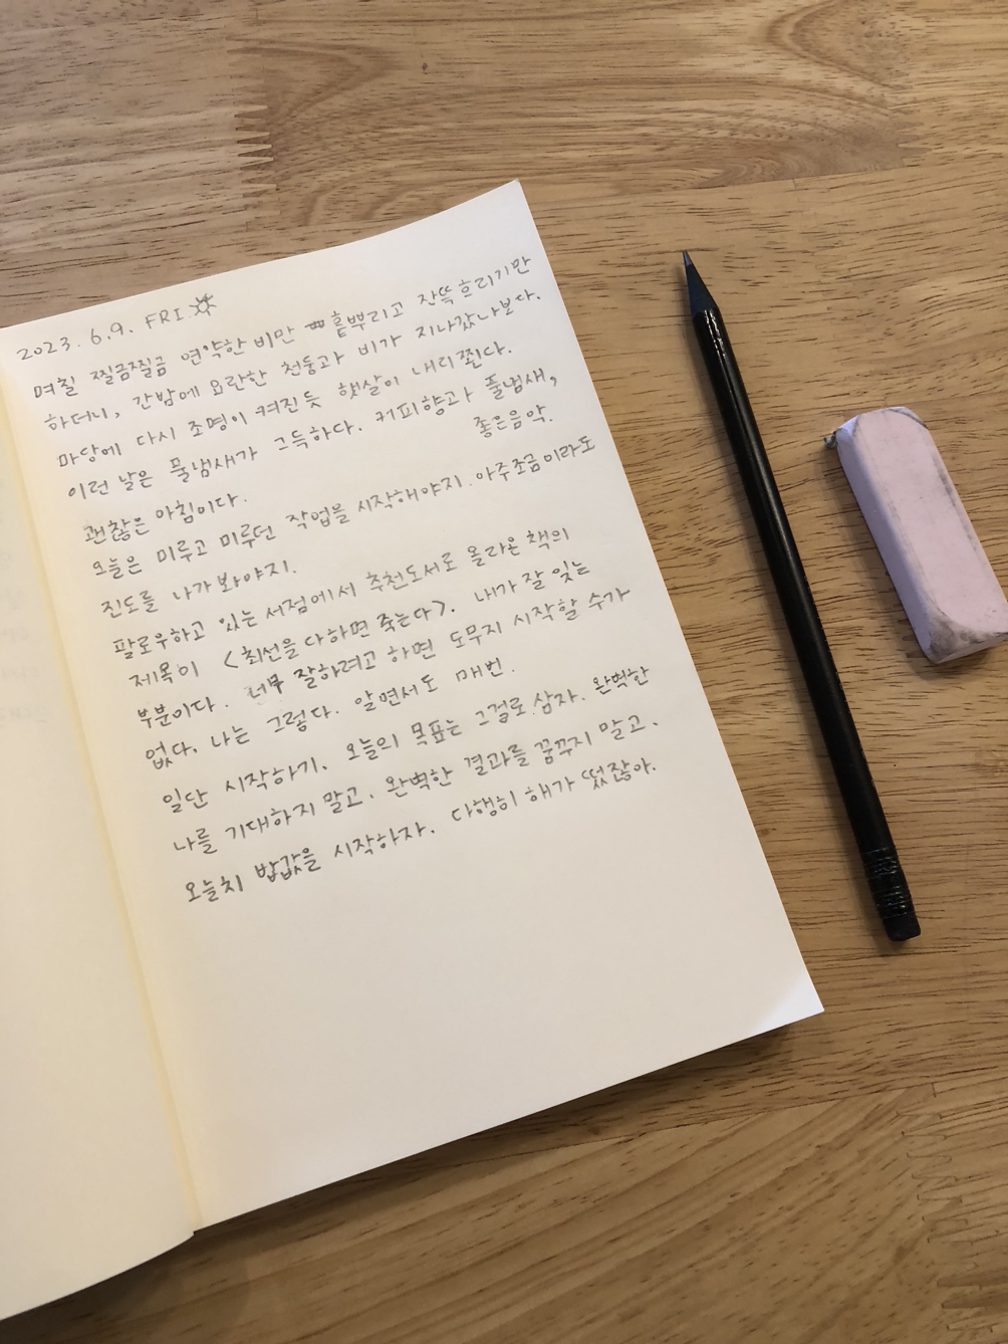 2023. 6. 9. FRI.
며칠 찔금찔금 연약한 비만 흩뿌리고 잔뜩 흐리기만
하더니, 간밤에 요란한 천둥과 비가 지나갔나보다.
마당에 다시 조명이 켜진듯 햇살이 내리쬔다.
이런 날은 풀냄새가 그득하다. 커피향과 풀냄새,
좋은음악.
괜찮은 아침이다.
오늘은 미루고 미루던 작업을 시작해야지. 아주조금이라도
진도를 나가봐야지.
팔로우하고 있는 서점에서 추천도서로 올라온 책의
제목이 <최선을 다하면 죽는다>. 내가 잘 잊는
부분이다. 너무 잘하려고 하면 도무지 시작할 수가
없다. 나는 그렇다. 알면서도 매번.
일단 시작하기. 오늘의 목표는 그걸로 삼자. 완벽한
나를 기대하지 말고. 완벽한 결과를 꿈꾸지 말고.
오늘치 밥값을 시작하자. 다행히 해가 떴잖아.